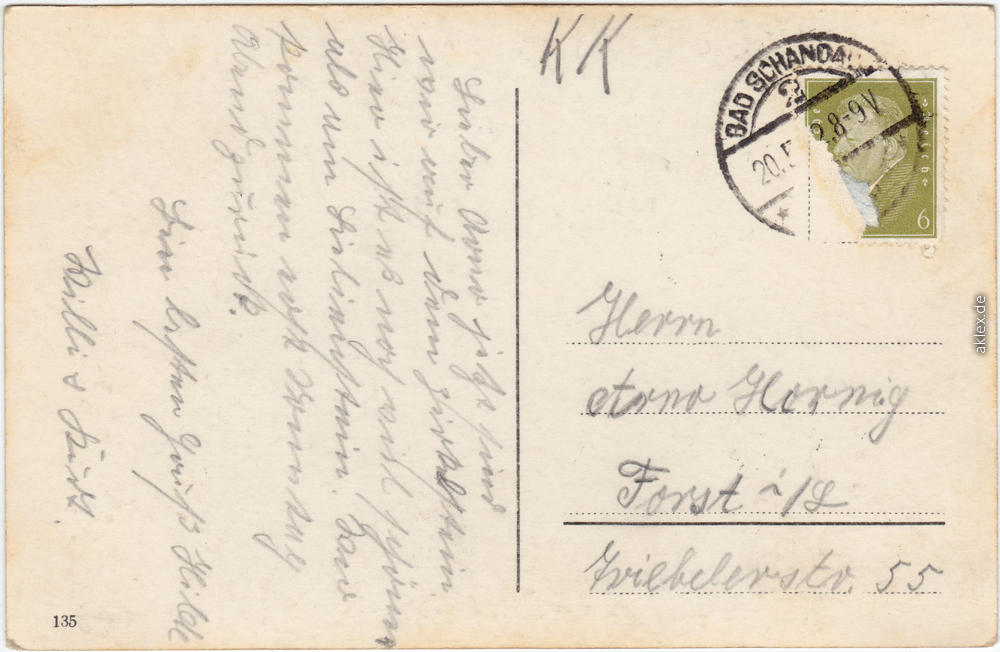 KK
BAD SCHANDAU
2
20.5
8-9V
6
Lieber Arno jetzt sind
wir auf dem Zirkelstein
Hier ist es noch viel schöner
als am Lilienstein. Wir
kommen erst Sonntag
Abend zurück.
Die besten Grüße Hilde
Willi & Kurt
Herrn
Arno Hornig
Forst i/L
Triebelerstr. 55
135
aklex.de